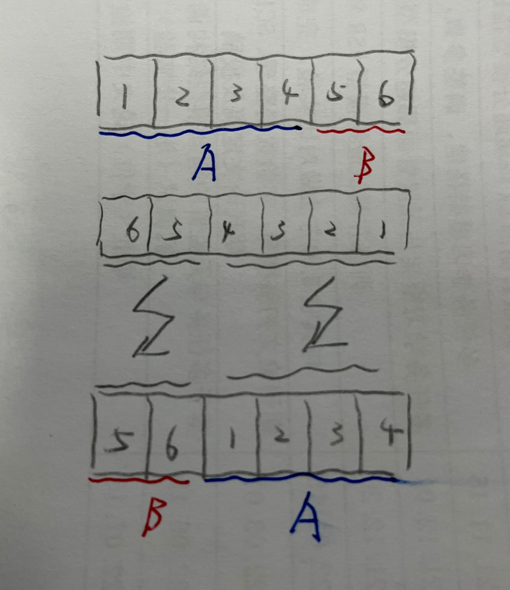 1 2 3 4 5 6
A B
6 5 4 3 2 1
5 6 1 2 3 4
B A